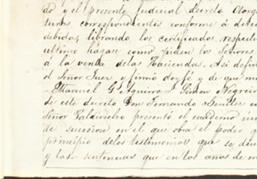 de y el presente judicial decreto otorg
turas correspondientes conforme á derec
debidos, librando los certificados respecti
ultimo hágase como piden los Señores
á la venta de las Haciendas. Así defin
el Señor Juez y firmó doy fé y de que m
Manuel G Aguirre Isidro Negreiro
de este decreto Don Fernando
Señor Valdivieso presentó el
de sucesion en el que obra el poder
principio de los testimonios que se
y las sentencias que en los años de m